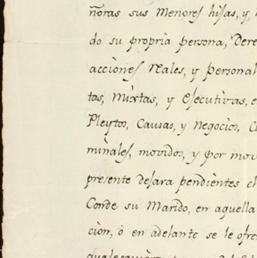 ñoras sus Menores hijas, y,
do su propria persona, Dere
acciones reales, y personal
tas, Mixtas, y Executivas, e
Pleytos, Causas, y Negocios, C
minales, movidos, y por mov
presente dejara pendientes el
Conde su Marido, en aquella
cion, ò en adelante se le ofre